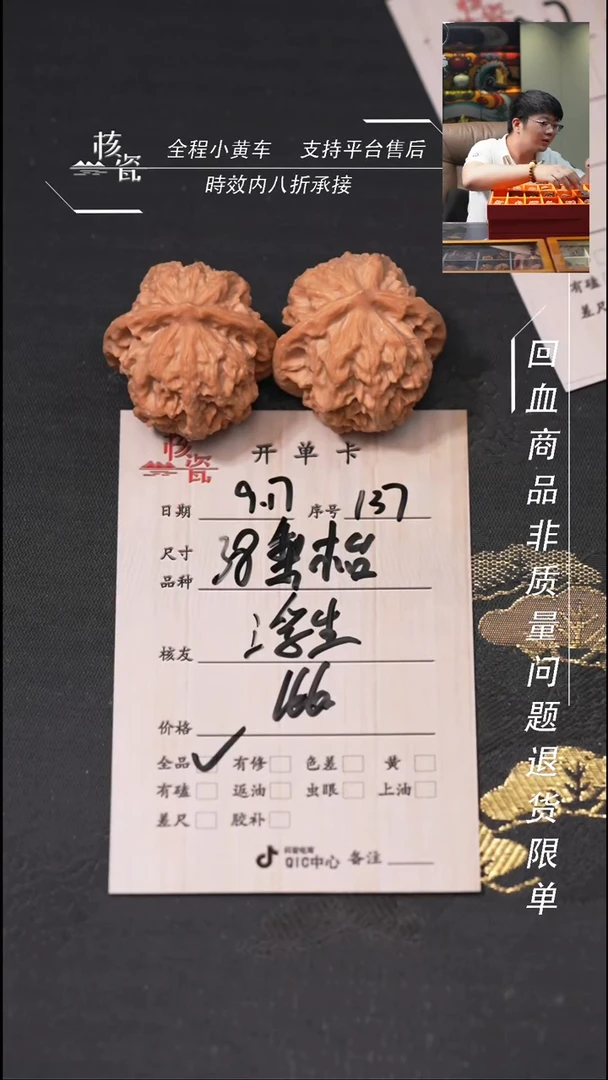 核瓷
全程小黄车 支持平台售后
時效内八折承接
回血商品非质量问题退货限单
有磕
差尺
核瓷
开单卡
日期 9.17 序号 137
尺寸
品种 38
核友 浮生
价格 166
全品 ✓ 有修 色差 黄
有磕 返油 虫眼 上油
差尺 胶补
抖音电商
QIC中心 备注